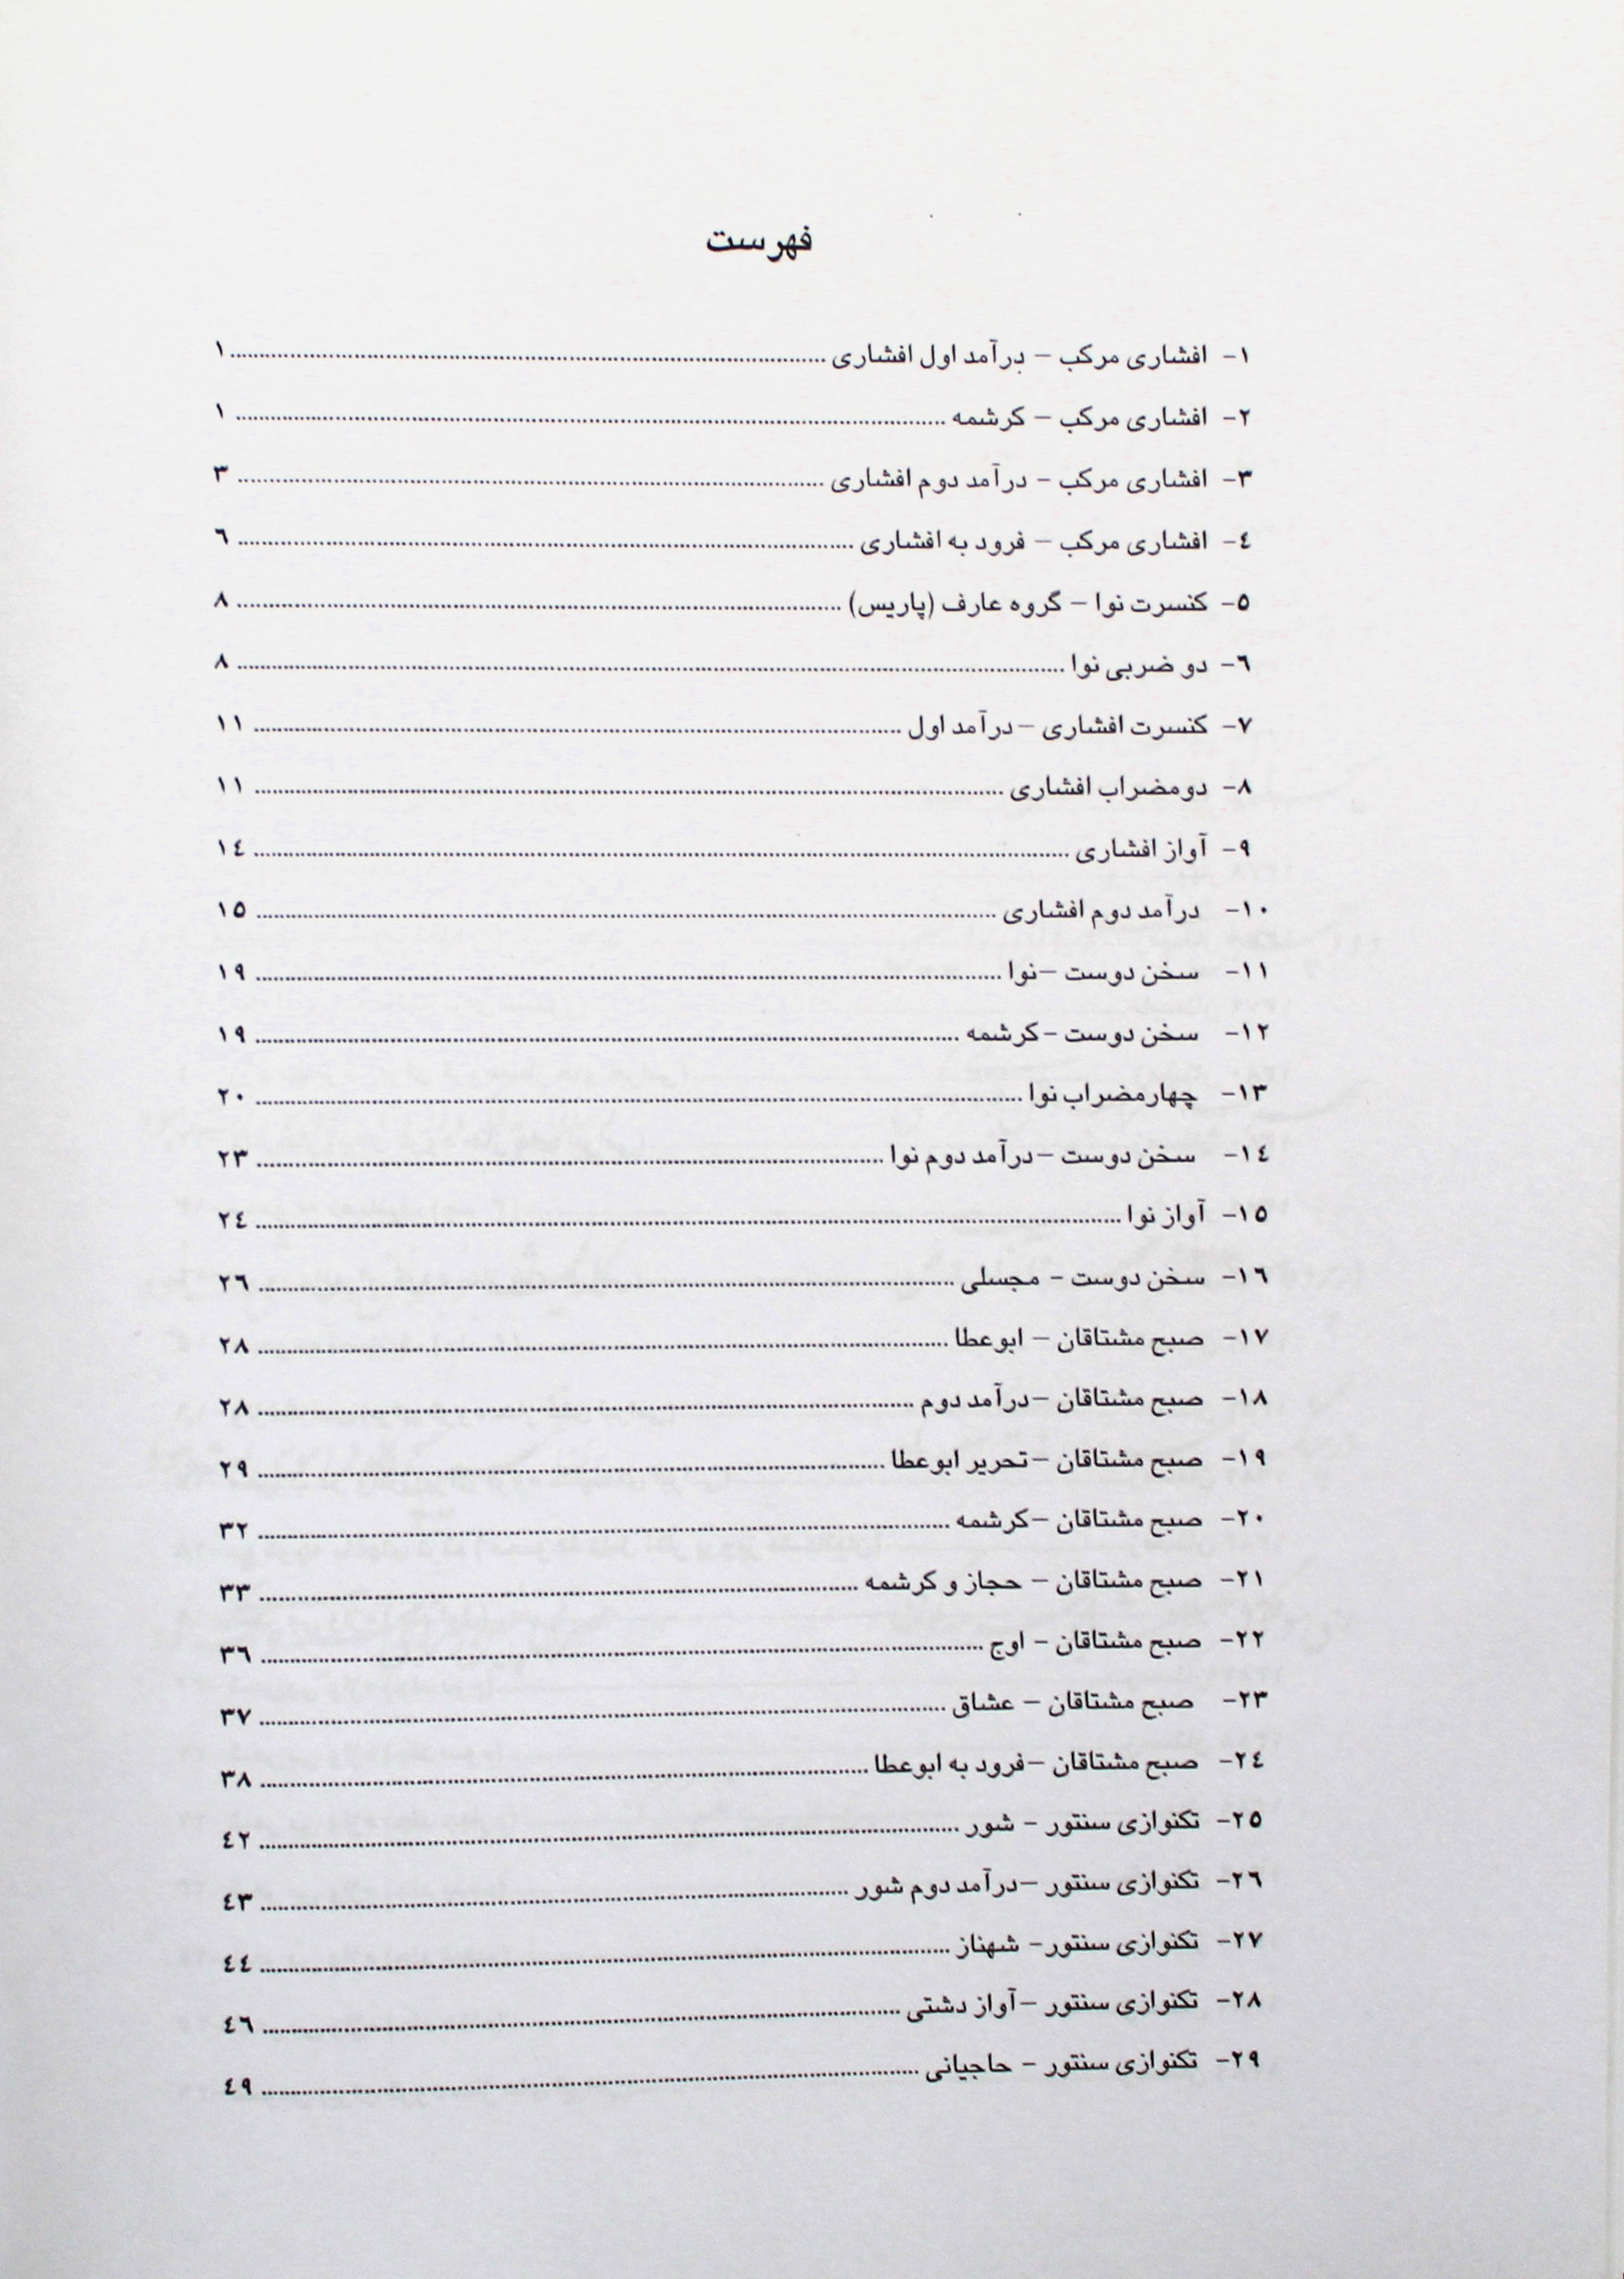 فهرست
۱- افشاری مرکب – درآمد اول افشاری ........ ۱
۲- افشاری مرکب – کرشمه ........ ۱
۳- افشاری مرکب - درآمد دوم افشاری ........ ۳
٤- افشاری مرکب – فرود به افشاری ........ ٦
٥- کنسرت نوا – گروه عارف (پاریس) ........ ۸
٦- دو ضربی نوا ........ ۸
۷- کنسرت افشاری –درآمد اول ........ ۱۱
۸- دومضراب افشاری ........ ۱۱
۹- آواز افشاری ........ ۱٤
۱۰- درآمد دوم افشاری ........ ۱٥
۱۱- سخن دوست –نوا ........ ۱۹
۱۲- سخن دوست -کرشمه ........ ۱۹
۱۳- چهارمضراب نوا ........ ۲۰
۱٤- سخن دوست –درآمد دوم نوا ........ ۲۳
۱٥- آواز نوا ........ ۲٤
۱٦- سخن دوست - مجسلی ........ ۲٦
۱۷- صبح مشتاقان – ابوعطا ........ ۲۸
۱۸- صبح مشتاقان –درآمد دوم ........ ۲۸
۱۹- صبح مشتاقان –تحریر ابوعطا ........ ۲۹
۲۰- صبح مشتاقان –کرشمه ........ ۳۲
۲۱- صبح مشتاقان – حجاز و کرشمه ........ ۳۳
۲۲- صبح مشتاقان - اوج ........ ۳٦
۲۳- صبح مشتاقان – عشاق ........ ۳۷
۲٤- صبح مشتاقان –فرود به ابوعطا ........ ۳۸
۲٥- تکنوازی سنتور - شور ........ ٤۲
۲٦- تکنوازی سنتور –درآمد دوم شور ........ ٤۳
۲۷- تکنوازی سنتور- شهناز ........ ٤٤
۲۸- تکنوازی سنتور –آواز دشتی ........ ٤٦
۲۹- تکنوازی سنتور - حاجیانی ........ ٤۹